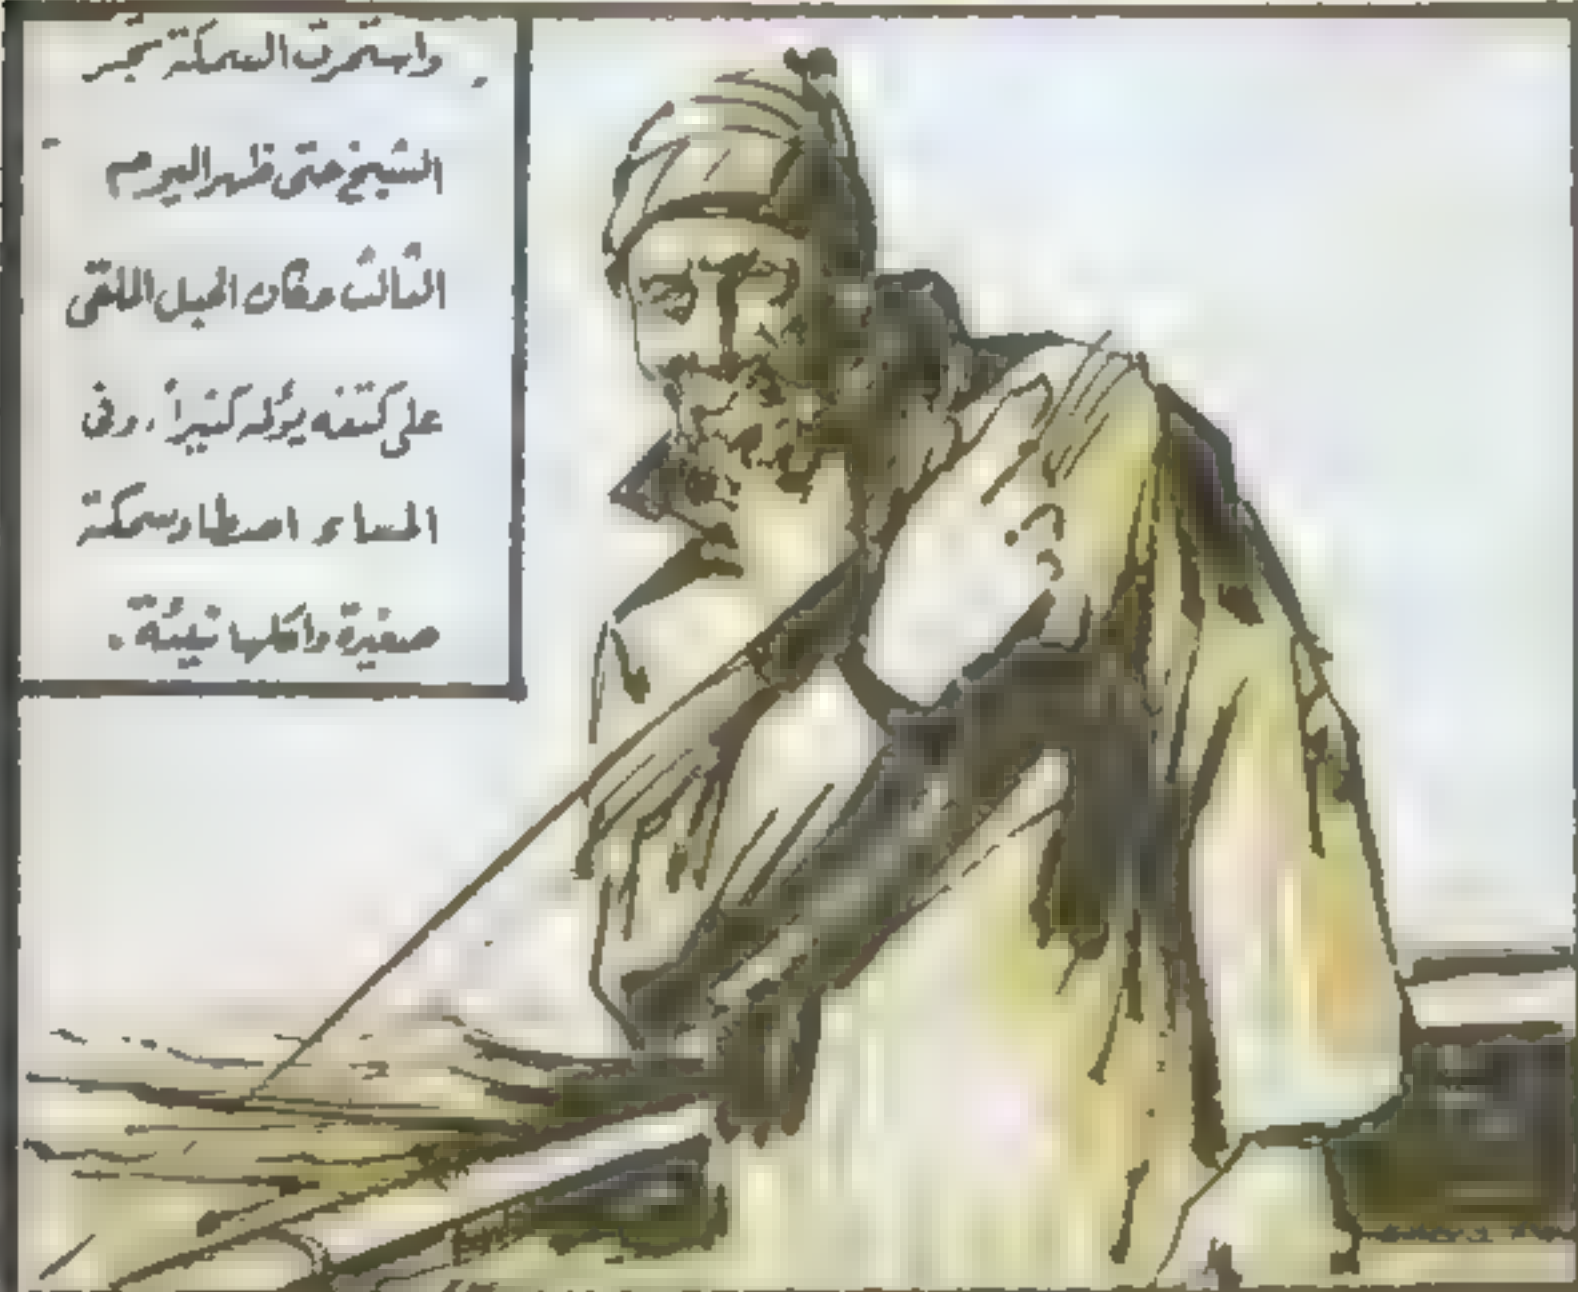 واستمرت السمكة تجر
الشيخ حتى ظهر اليوم
الثالث وكان الحبل الملقى
على كتفه يؤلمه كثيراً ، وفى
المساء اصطاد سمكة
صغيرة وأكلها نيئة .